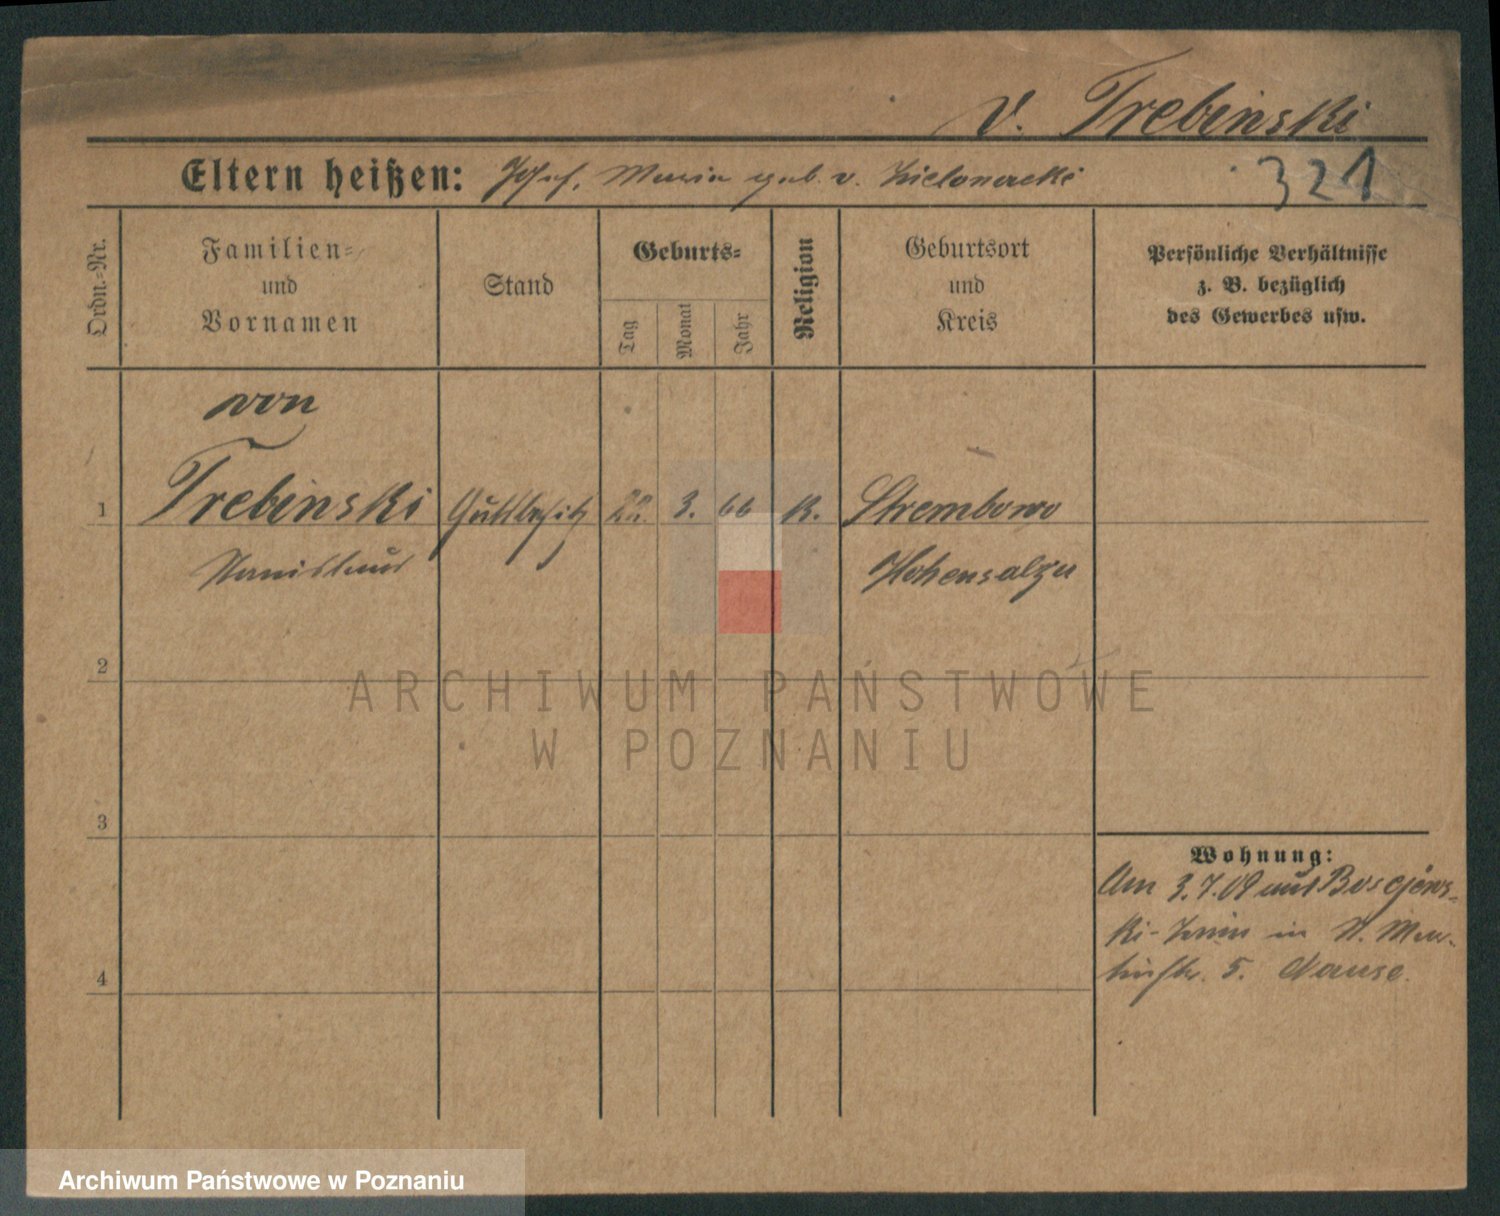 v. Trebinski
Eltern heißen: Josef, Maria geb. v. Zielonacki
321
Ordn.-Nr.
Familien-
und
Vornamen
Stand
Geburts-
Tag
Monat
Jahr
Religion
Geburtsort
und
Kreis
Persönliche Verhältnisse
z. B. bezüglich
des Gewerbes usw.
von
1 Trebinski Gutsbesitz 22. 3. 66 K. Strembowo
Stanislaus Hohensalza
2
3
4
Wohnung:
Am 3.7.09 aus
in St. Mar-
tinstr. 5.
ARCHIWUM PAŃSTWOWE
W POZNANIU
Archiwum Państwowe w Poznaniu